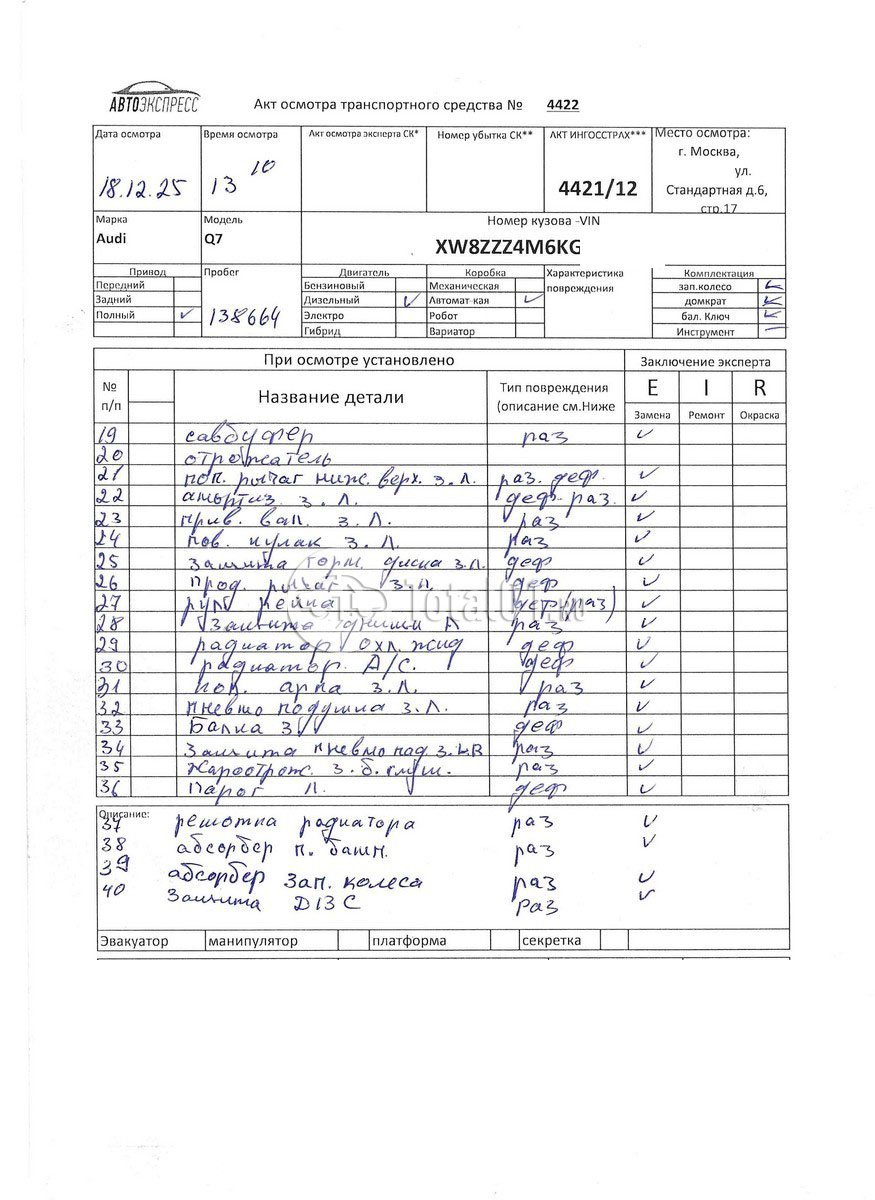 АВТОЭКСПРЕСС
Акт осмотра транспортного средства № 4422
Дата осмотра Время осмотра Акт осмотра эксперта СК* Номер убытка СК** АКТ ИНГОССТРАХ*** Место осмотра:
г. Москва,
ул.
18.12.25 13 10 4421/12 Стандартная д.6,
стр.17
Марка Модель Номер кузова -VIN
Audi Q7 XW8ZZZ4M6KG
Привод Пробег Двигатель Коробка Характеристика повреждения Комплектация
Передний Бензиновый Механическая зап.колесо
Задний Дизельный Автомат-кая домкрат
Полный 138664 Электро Робот бал. Ключ
Гибрид Вариатор Инструмент
При осмотре установлено Заключение эксперта
№ п/п Название детали Тип повреждения (описание см.Ниже E I R
Замена Ремонт Окраска
19 савбуфер раз
20 отрожатель
21 поп. рычаг ниж. верх. з.Л. раз. деф.
22 амортиз з.Л. деф. раз.
23 прив. вал. з.Л. раз
24 пов. кулак з.Л. раз
25 Защита торм. диска з.Л. деф
26 Прод. рычаг з.Л. деф
27 рул рейка деф (раз)
28 Защита днища Л раз
29 радиатор охл. жид деф
30 радиатор A/C. деф
31 поп. арка з.Л. раз
32 пневмо подушка з.Л. раз
33 Балка з деф
34 Защита пневмо под з. LR раз
35 з.б. глуш. раз
36 Парог Л. деф
Описание:
37 решотка радиатора раз
38 абсорбер п. бамп. раз
39 абсорбер Зап. колеса раз
40 Защита ДВС раз
Эвакуатор манипулятор платформа секретка
Total01.ru